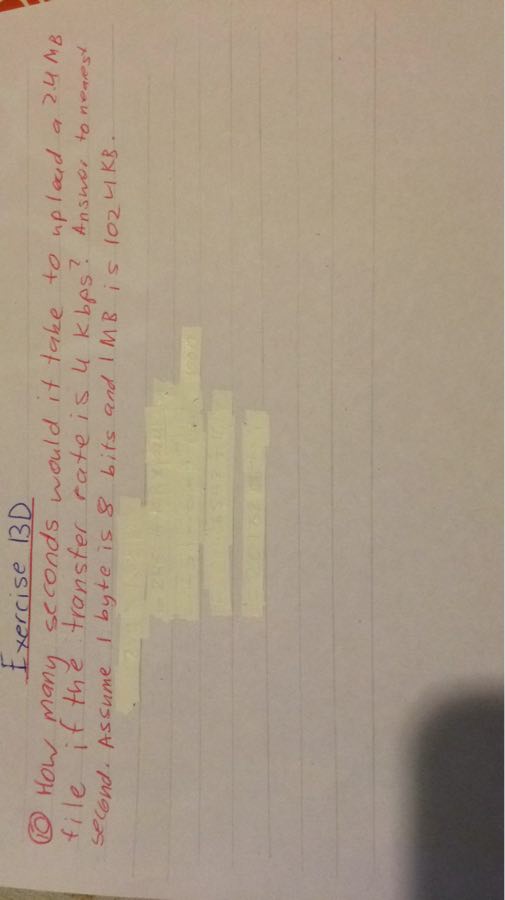 Exercise 13D
10 How many seconds would it take to upload a 2.4 MB
file if the transfer rate is 4 kbps? Answer to nearest
second. Assume 1 byte is 8 bits and 1 MB is 1024 KB.